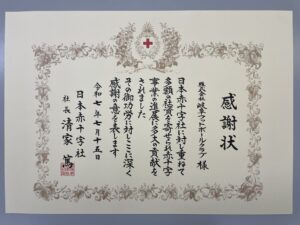 感謝状
株式会社岐阜フットボールクラブ 様
日本赤十字社に対し重ねて
多額の社資を寄せられ赤十字
事業の進展に多大の貢献を
されました
その御功労に対しここに深く
感謝の意を表します
令和七年七月十五日
日本赤十字社
社長 清家 篤